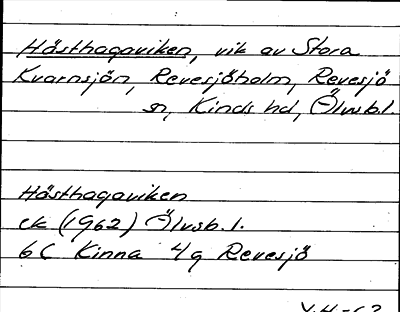 Hästhagaviken, vik av Stora
Kvarnsjön, Revesjöholm, Revesjö
sn, Kinds hd, Älvsb.l.
Hästhagaviken
ek (1962) Älvsb.l.
6C Kinna 4g Revesjö